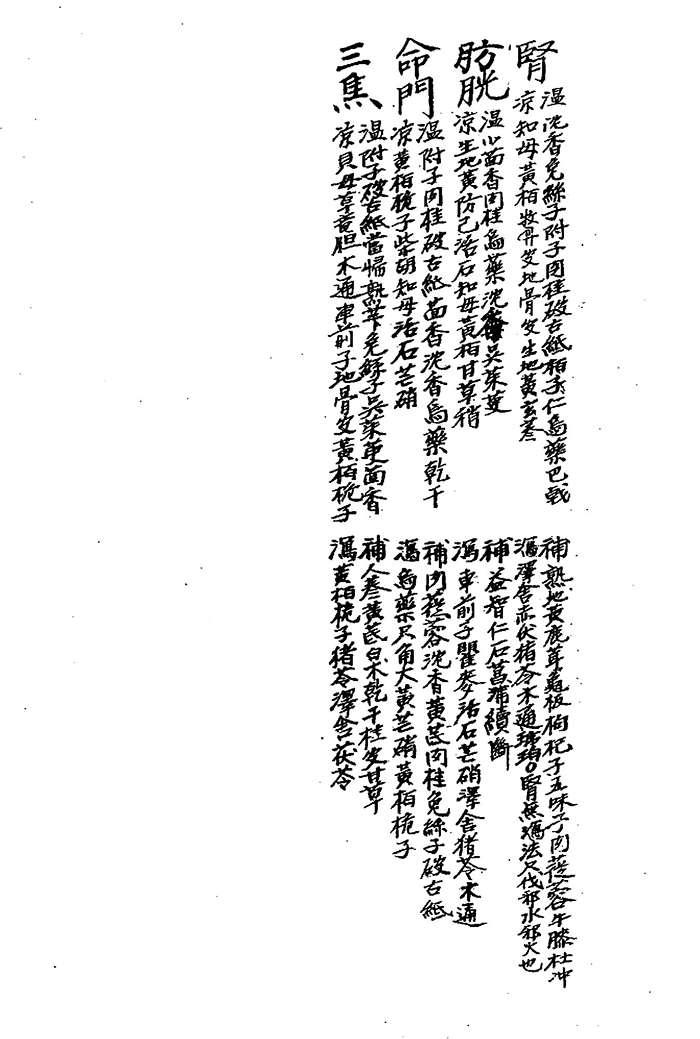 腎
温沈香兔絲子附子肉桂破古紙柏子仁烏藥巴戟
凉知母黃栢牧丹皮地骨皮生地黃玄蔘
補熟地黃鹿茸龜板枸杞子五味子肉蓯蓉牛膝杜冲
瀉澤舍赤伏猪苓木通琥珀○腎無瀉法只伐邪水邪火也
肪胱
温小茴香肉桂烏藥沈香吳茱萸
凉生地黃防己活石知母黃栢甘草稍
補益智仁石菖蒲續斷
瀉車前子瞿麥活石芒硝澤舍猪苓木通
命門
温附子肉桂破古紙茴香沈香烏藥乾干
凉黃栢梔子柴胡知母活石芒硝
補肉蓯蓉沈香黃芪肉桂兔絲子破古紙
瀉烏藥只角大黃芒硝黃栢梔子
三焦
温附子破古紙當歸熟芐兔絲子吳茱萸茴香
凉貝母草龍胆木通車前子地骨皮黃栢梔子
補人蔘黃芪白朮乾干桂皮甘草
瀉黃栢梔子猪苓澤舍茯苓